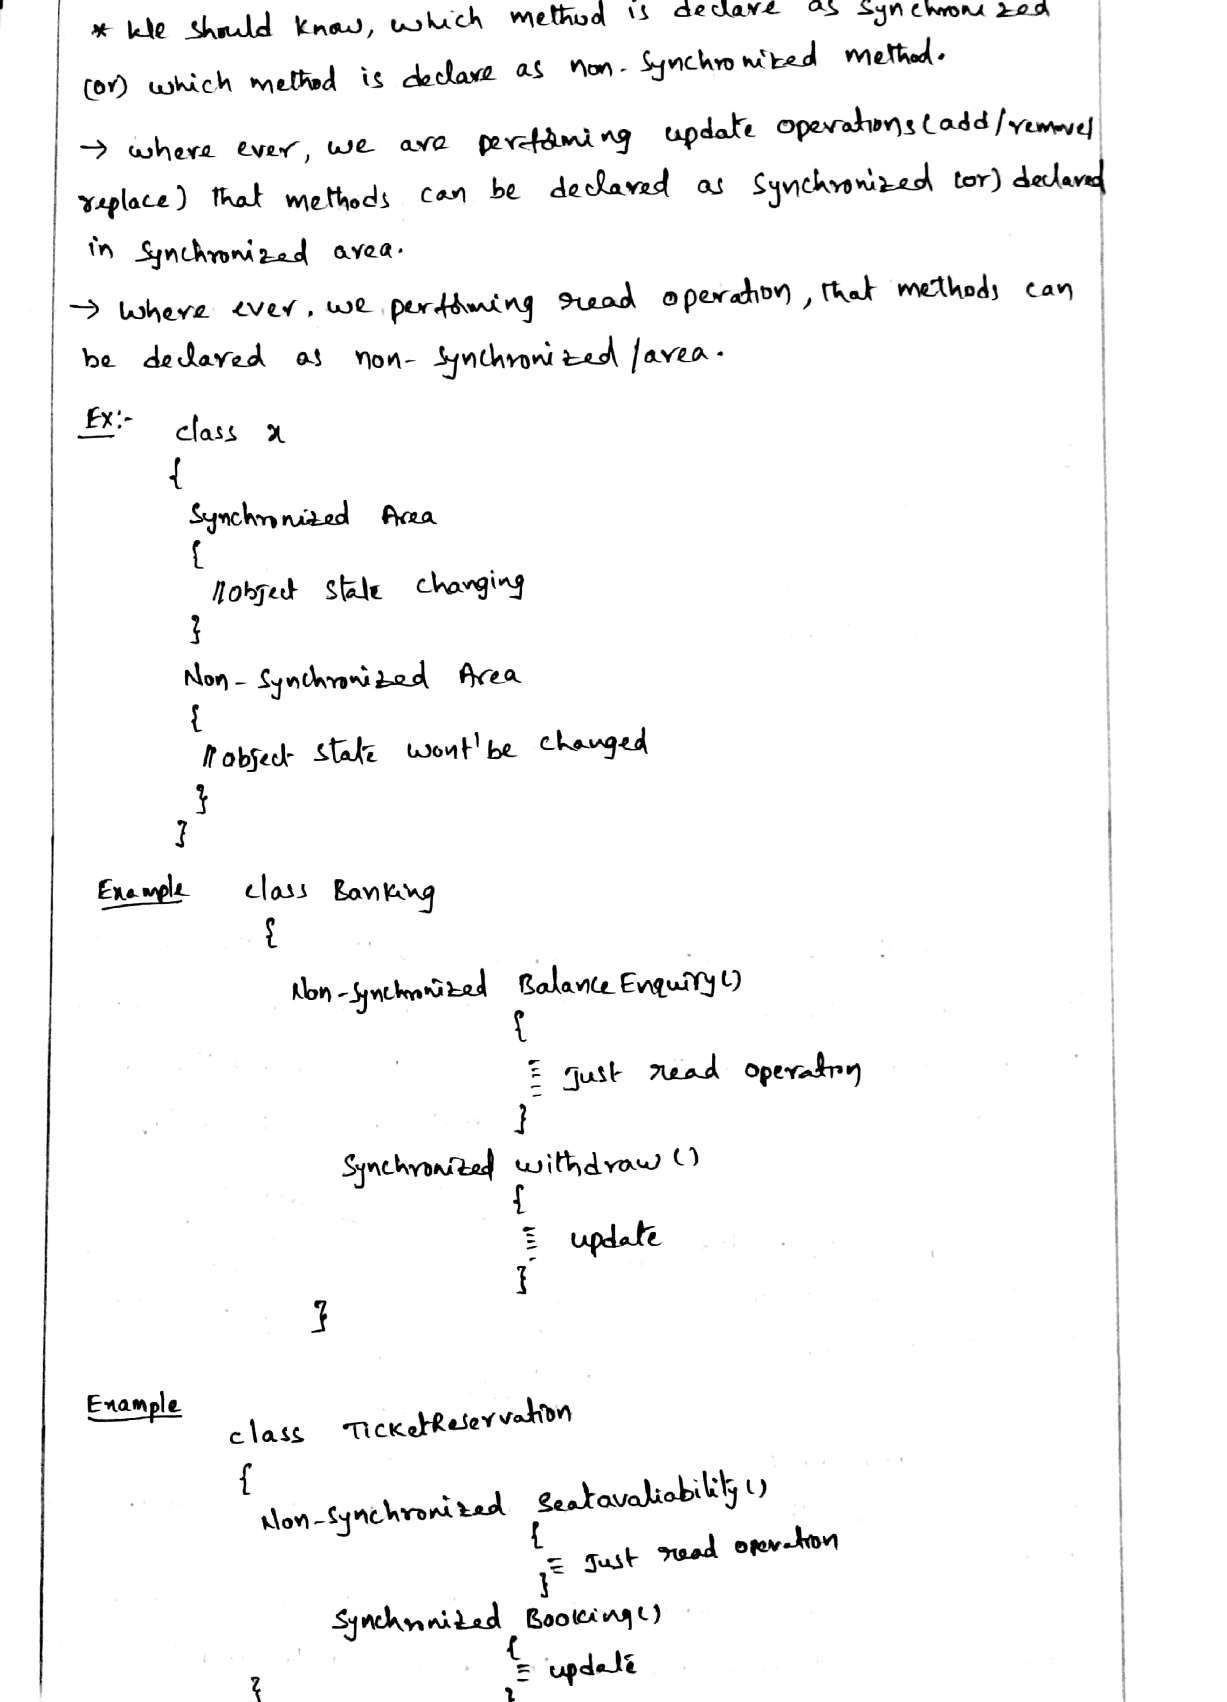 * We should know, which method is declare as synchronized
(or) which method is declare as non-synchronized method.
→ where ever, we are perfoming update operations (add/remove/
replace) that methods can be declared as synchronized (or) declared
in synchronized area.
→ where ever, we performing read operation, that methods can
be declared as non-synchronized /area.
Ex:- class x
{
Synchronized Area
{
//object state changing
}
Non-synchronized Area
{
//object state wont'be changed
}
}
Example class Banking
{
Non-synchronized Balance Enquiry()
{
Just read operation
}
Synchronized withdraw ()
{
update
}
}
Example
class TicketReservation
{
Non-synchronized Seatavaliability()
{
Just read operation
}
Synchronized Booking()
{
update
}
}